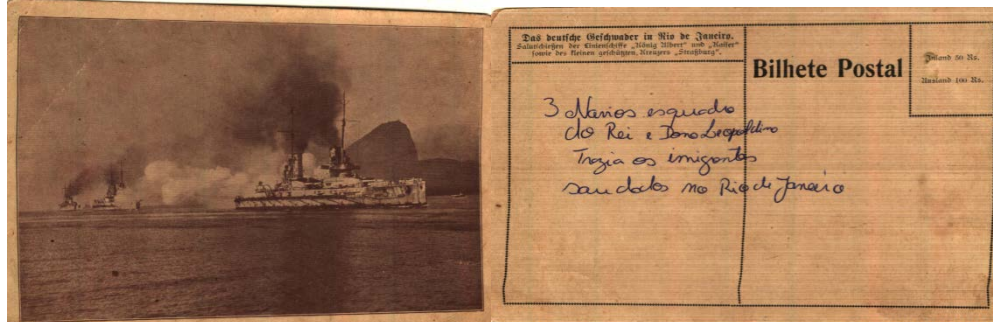 Das deutsche Geschwader in Rio de Janeiro.
Salutschießen der Linienschiffe „König Albert“ und „Kaiser“
sowie des kleinen geschützten Kreuzers „Straßburg“.
Bilhete Postal
Inland 50 Rs.
Ausland 100 Rs.
3 Navios esquadra
do Rei e Dona Leopoldina
Trazia os imigrantes
saudados no Rio de Janeiro